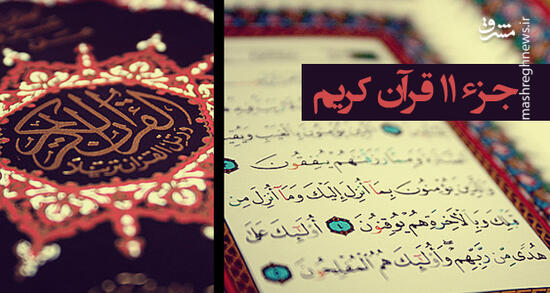 مشرق
mashreghnews.ir
جزء ۱۱ قرآن کریم
القرآن الكريم
ورتل القرآن ترتيلا
وَمِمَّا رَزَقْنَاهُمْ يُنفِقُونَ
يُؤْمِنُونَ بِمَا أُنزِلَ إِلَيْكَ وَمَا أُنزِلَ مِن
قَبْلِكَ وَبِالْآخِرَةِ هُمْ يُوقِنُونَ ۴ أُولَٰئِكَ عَلَىٰ
هُدًى مِّن رَّبِّهِمْ وَأُولَٰئِكَ هُمُ الْمُفْلِحُونَ ۵